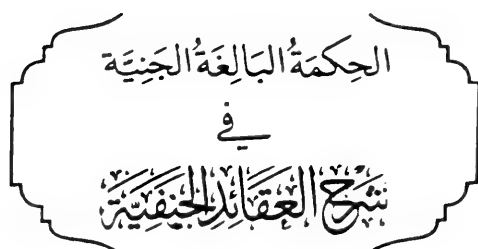 الحِكمَةُ البَالِغَةُ الجَنِيَّة
في
شَرْحِ العَقَائِدِ الحَنِيفِيَّةِ